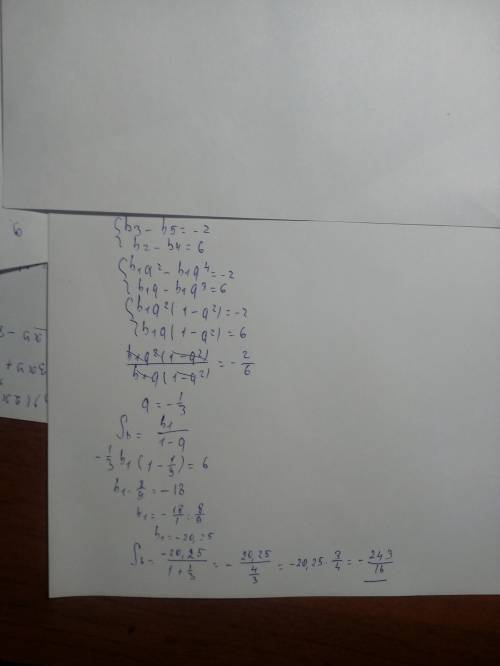 { b3 - b5 = -2
{ b2 - b4 = 6
{ b1q² - b1q⁴ = -2
{ b1q - b1q³ = 6
{ b1q²(1 - q²) = -2
{ b1q(1 - q²) = 6
b1q²(1-q²) / b1q(1-q²) = - 2/6
q = - 1/3
Sb = b1/(1-q)
- 1/3 b1(1 - 1/9) = 6
b1 · 8/9 = -18
b1 = - 18/1 : 8/9
b1 = -20,25
Sb = -20,25/(1 + 1/3) = - 20,25/(4/3) = -20,25 · 3/4 = - 243/16